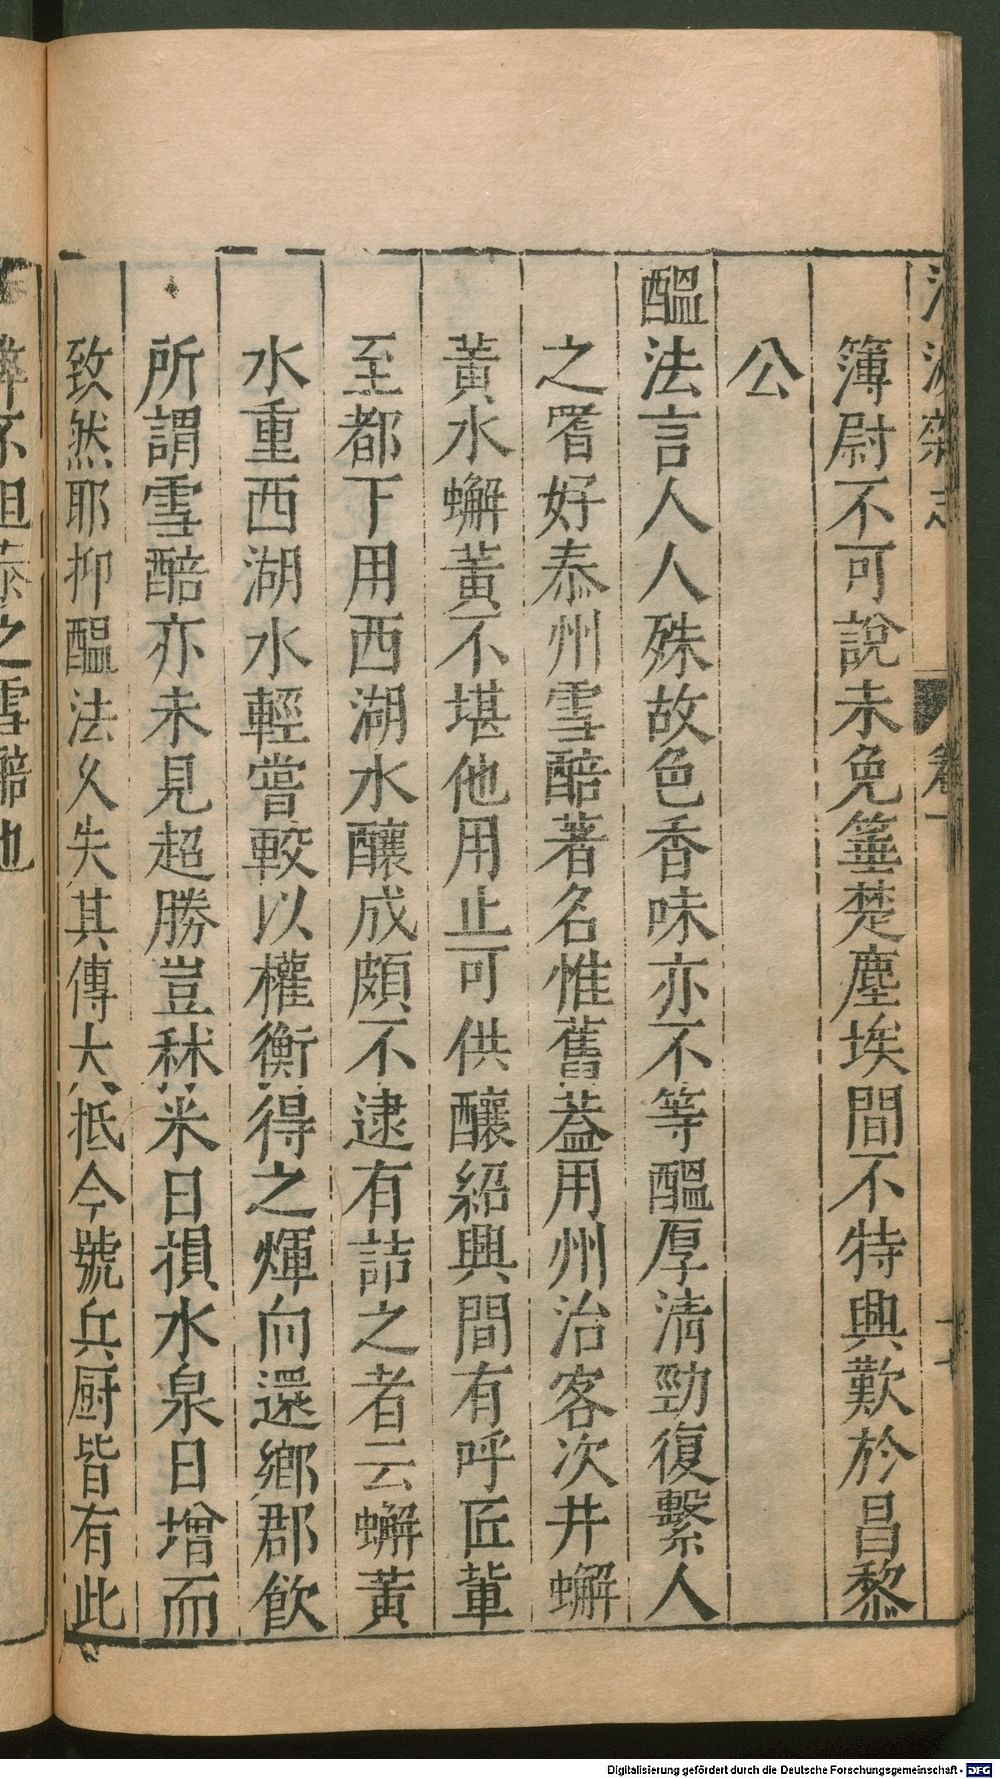 簿尉不可說未免箠楚塵埃間不特興歎於昌黎
公
醞法言人人殊故色香味亦不等醞厚清勁復繫人
之嗜好泰州雪醅著名惟舊蓋用州治客次井蠏
黃水蠏黃不堪他用止可供釀紹興間有呼匠輩
至都下用西湖水釀成頗不逮有詰之者云蠏黃
水重西湖水輕嘗較以權衡得之煇向還鄉郡飲
所謂雪醅亦未見超勝豈秫米日損水泉日增而
致然耶抑醞法久失其傳大抵今號兵厨皆有此
之雪醅也
Digitalisierung gefördert durch die Deutsche Forschungsgemeinschaft - DFG